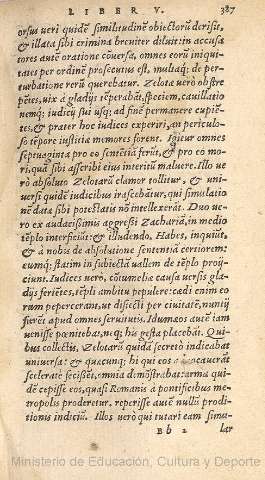 LIBER V. 387
orsus veri quidē similitudinē obiectorū derisit,
& illata sibi crimina breuiter diluit: in accusa
tores autē oratione cōuersa, omnes eorū iniqui-
tates per ordinē prosecutus est, multaq́; de per-
turbatione rerū querebatur. Zelotæ uerò obstre
pētes, uix à gladijs tēperabāt, speciem, cauillatio
nemq́; iudicij sui usq; ad finē permanere cupiē-
tes, & præter hoc iudices experiri, an periculo-
so tēpore iustitiæ memores forent. Igitur omnes
septuaginta pro eo sentētiā ferūt, & pro eo mo-
ri, quā sibi ascribi eius interitū maluere. Illo ue-
rò absoluto Zelotarū clamor tollitur, & uni-
uersi quidē iudicibus irascebātur, qui simulatio
nē datæ sibi potestatis nō intellexerāt. Duo ue-
ro ex audacissimis aggressi Zachariā, in medio
tēplo interficiūt: & illudendo, Habes, inquiūt,
& à nobis de absolutione sententiā certiorem:
eumq́; statim in subiectā uallem de tēplo proij-
ciunt. Iudices uerò, cōtumeliæ causa uersis gla-
dijs feriētes, tēpli ambitu pepulere: cædi enim eo
rum pepercerant, ut dissecti per ciuitatē, nuncij
fierēt apud omnes seruitutis. Idumæos autē iam
uenisse pœnitebat, neq́; his gesta placebāt. Qui
bus collectis, Zelotarū quidā secretò indicabat
uniuersa: & quæcunq; hi qui eos aduocauerāt
scelerate fecissēt, omnia demōstrabat: arma qui
dē cepisse eos, quasi Romanis à pontificibus me
tropolis proderetur. reperisse autē nullū prodi-
tionis indiciū. Illos uerò qui tutari eam simu-
Bb 2 lar
Ministerio de Educación, Cultura y Deporte